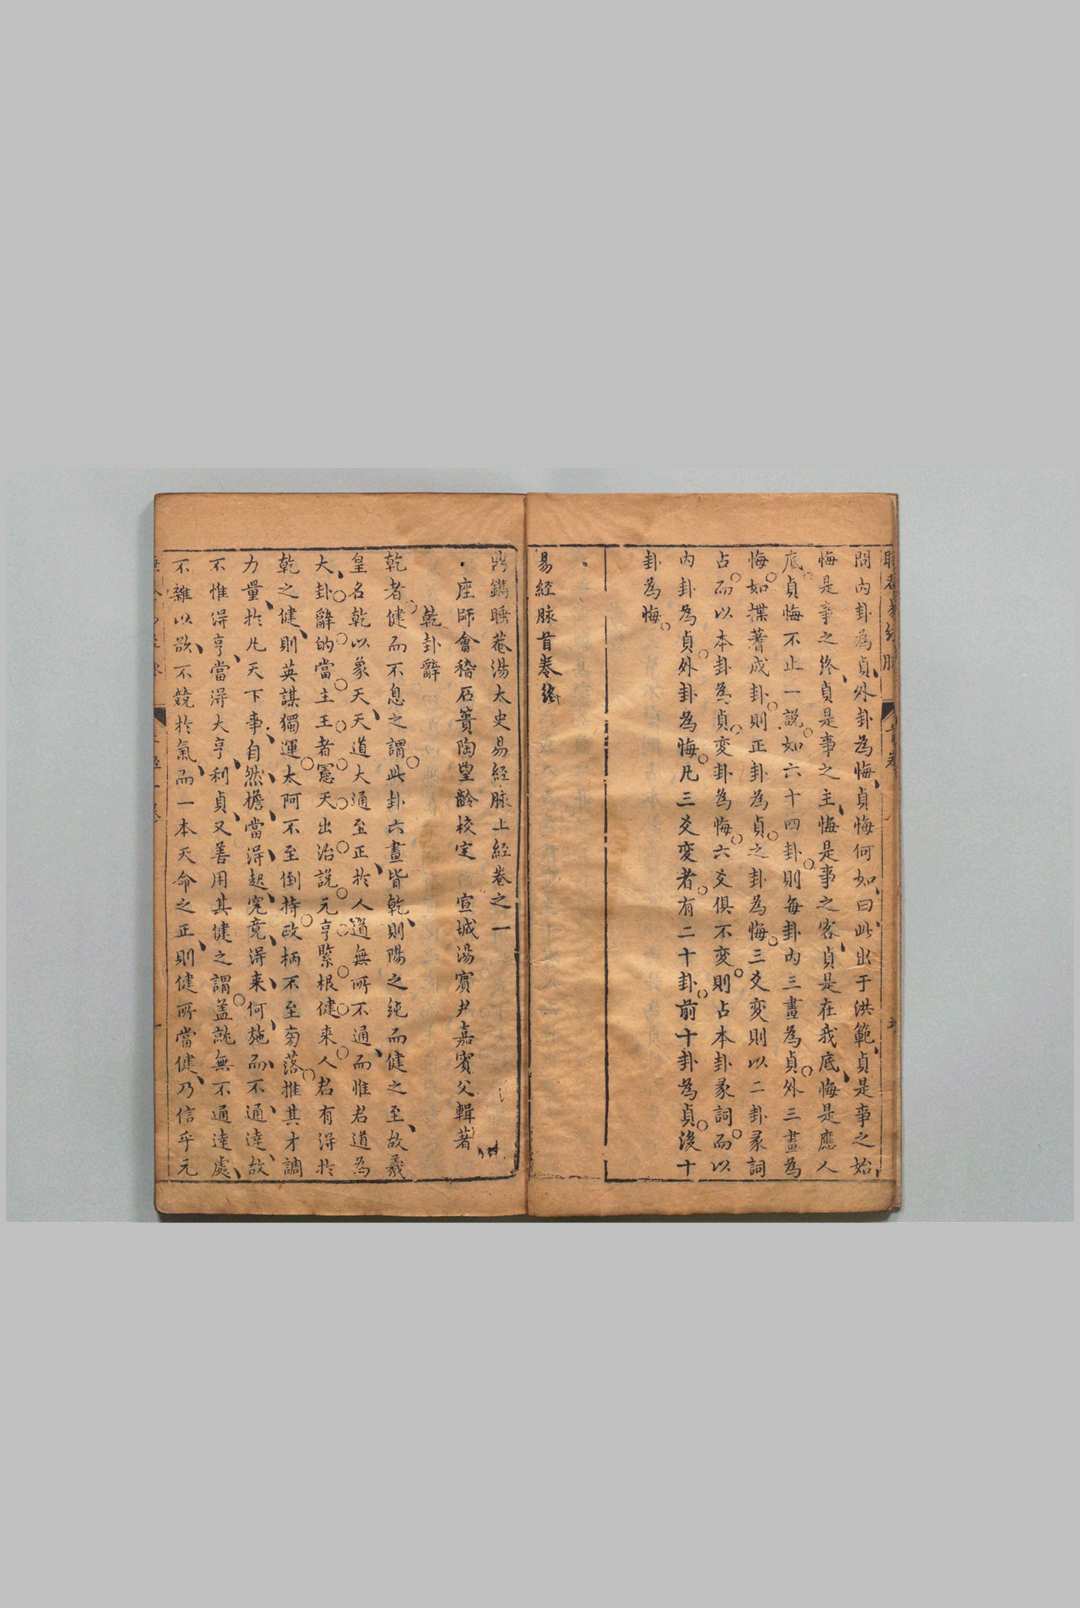 問內卦為貞外卦為悔貞悔何如曰此出于洪範貞是事之始
悔是事之終貞是事之主悔是事之客貞是在我底悔是應人
底貞悔不止一說如六十四卦則每卦內三畫為貞外三畫為
悔如揲蓍成卦則正卦為貞之卦為悔三爻変則以二卦彖詞
占而以本卦為貞変卦為悔六爻俱不変則占本卦彖詞而以
內卦為貞外卦為悔凡三爻変者有二十卦前十卦為貞後十
卦為悔
易經脉首卷終
鼎鐫睡菴湯太史易經脉上經卷之一
座師會稽石簣陶望齡校定 宣城湯賓尹嘉賓父輯著
乾卦辭
乾者健而不息之謂此卦六畫皆乾則陽之純而健之至故羲
皇名乾以象天天道大通至正於人道無所不通而惟君道為
大卦辭的當主王者憲天出治說元亨緊根健來人君有得於
乾之健則英謀獨運太阿不至倒持政柄不至旁落推其才調
力量於凡天下事自然擔當得起究竟得來何施而不通達故
不惟得亨當得大亨利貞又善用其健之謂蓋說無不通達處
不雜以欲不競於氣而一本天命之正則健所當健乃信乎元